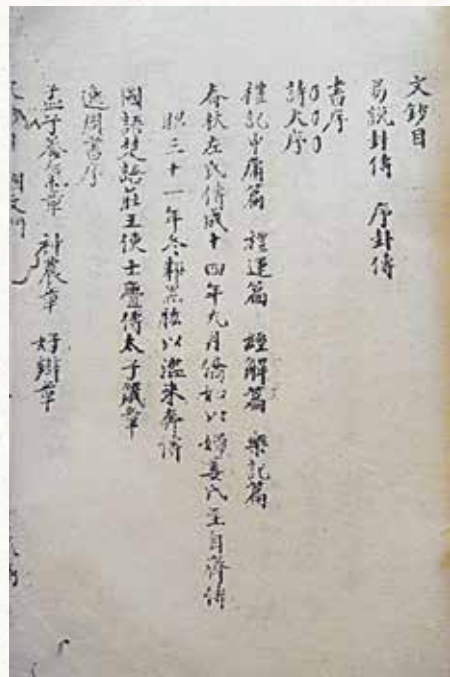 文鈔目
易說卦傳 序卦傳
書序
詩大序
禮記中庸篇 禮運篇 經解篇 樂記篇
春秋左氏傳成十四年九月僑如以婦姜氏至自齊傳
昭三十一年冬邾黑肱以濫來奔傳
國語楚語莊王使士亹傅太子箴章
逸周書序
孟子養氣章 神農章 好辯章